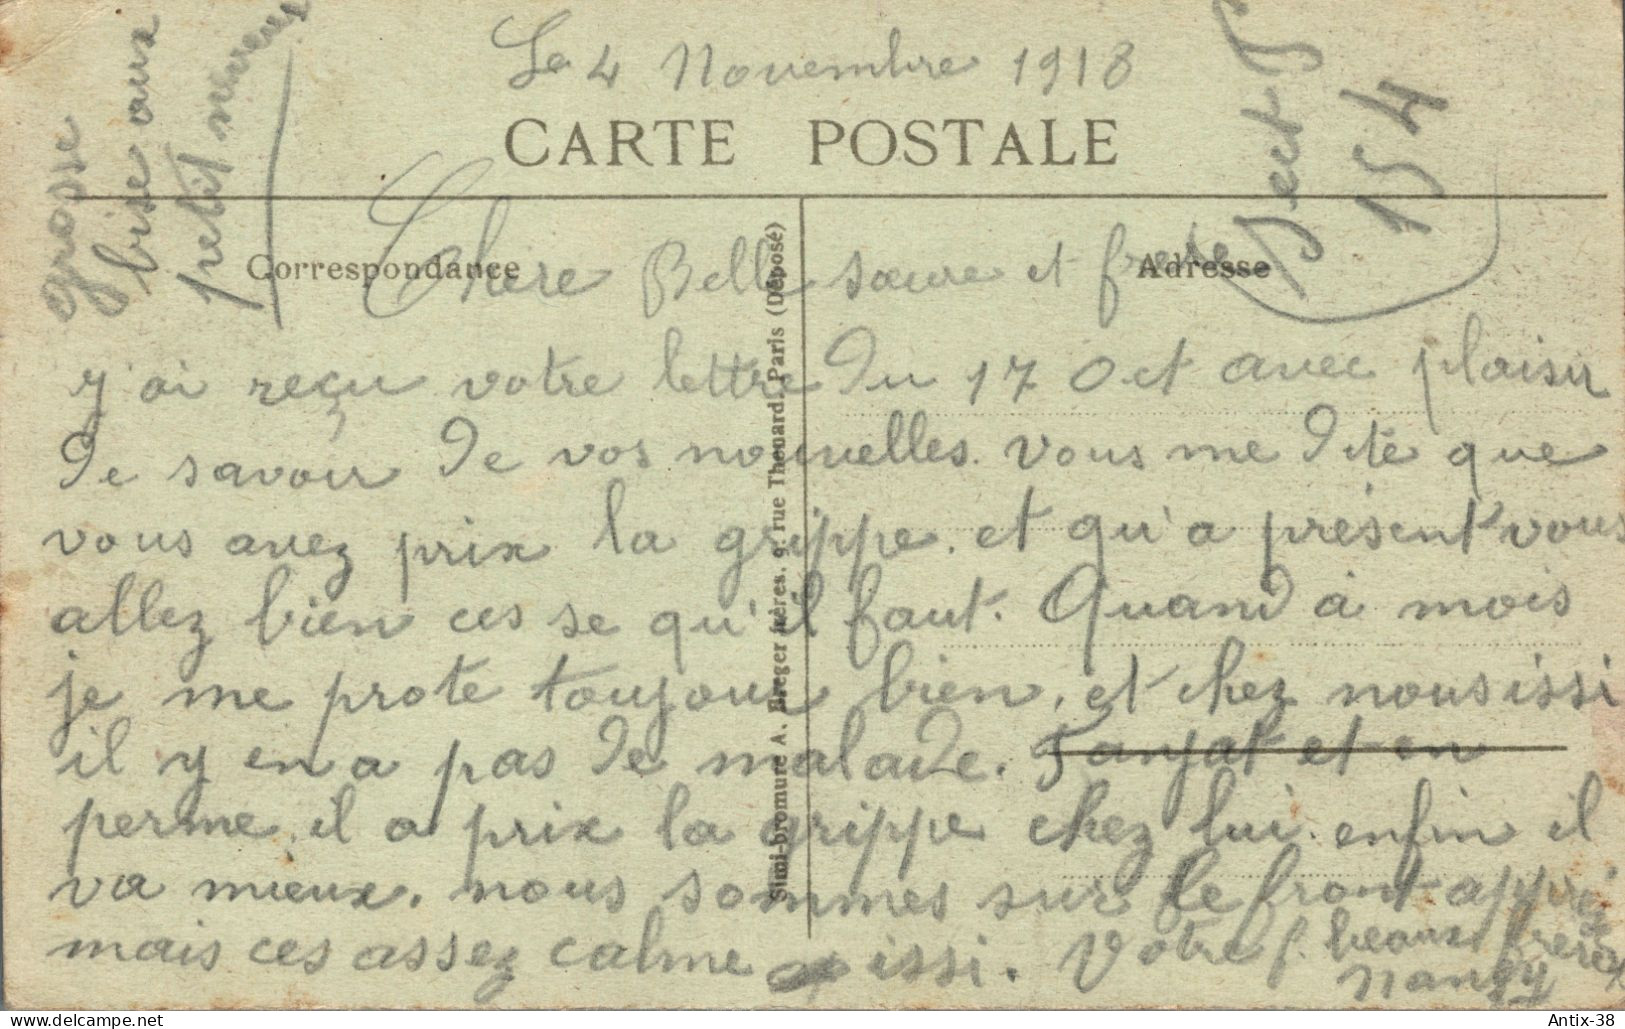 Le 4 Novembre 1918
CARTE POSTALE
Correspondance
Adresse
Chere Belle sœure et frere
y'ai reçu votre lettre du 17 Oct avec plaisir
de savoir de vos nouvelles. Vous me dite que
vous avez prix la grippe. et qu'a présent vous
allez bien ces se qu'il faut. Quand à mois
je me prote toujour bien, et chez nous issi
il y en a pas de malade. et en
perme, il a prix la grippe chez lui. enfin il
va mieux. nous sommes sur le front apprés
mais ces assez calme issi. Votre f. beaux frere
Nancy
grosse
bise aux
petit neveux
Sect P
154
Simi-bromure A. Breger frères. 9, rue Thouard, Paris (Déposé)
Antix-38